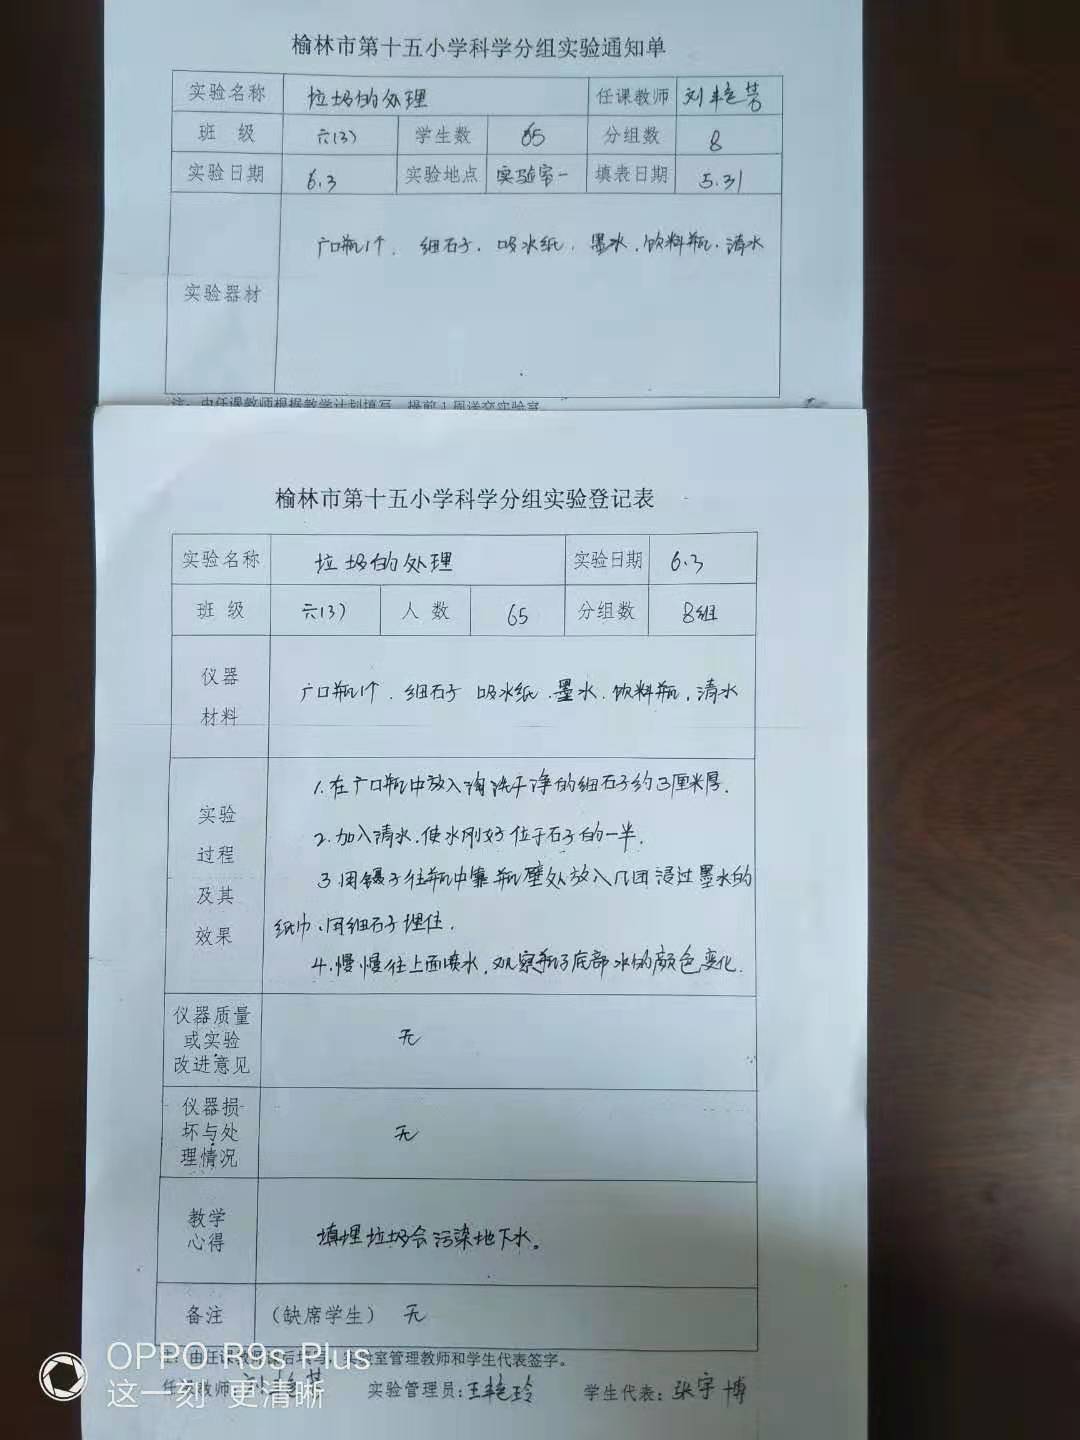 榆林市第十五小学科学分组实验通知单
实验名称 垃圾的处理 任课教师 刘艳芳
班 级 六(3) 学生数 65 分组数 8
实验日期 6.3 实验地点 实验室一 填表日期 5.31
实验器材 广口瓶1个、细石子、吸水纸、墨水、饮料瓶、清水
注：由任课教师根据教学计划填写，提前1周送交实验室
榆林市第十五小学科学分组实验登记表
实验名称 垃圾的处理 实验日期 6.3
班 级 六(3) 人 数 65 分组数 8组
仪器
材料
广口瓶1个、细石子 吸水纸、墨水、饮料瓶、清水
实验
过程
及其
效果
1.在广口瓶中放入淘洗干净的细石子约3厘米厚.
2.加入清水,使水刚好位于石子的一半.
3.用镊子往瓶中靠瓶壁处放入几团浸过墨水的
纸巾、用细石子埋住.
4.慢慢往上面喷水,观察瓶子底部水的颜色变化.
仪器质量
或实验
改进意见
无
仪器损
坏与处
理情况
无
教学
心得
填埋垃圾会污染地下水。
备注 （缺席学生） 无
注：由任课教师课后填写，实验室管理教师和学生代表签字。
任课教师 实验管理员：王艳玲 学生代表：张宇博
OPPO R9s Plus
这一刻 更清晰